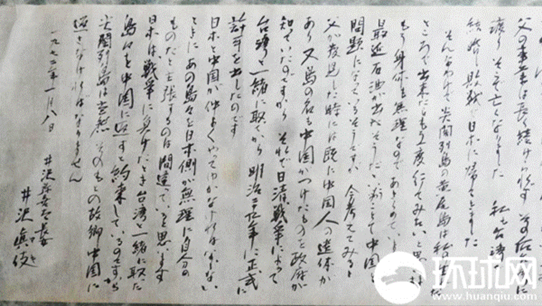 父の事業は長続きせず その后
渡り そこで亡くなりました 私も台湾
結婚し敗戦で日本に帰りました
そんなわけで尖閣列島の黄尾島は私
ところで出来たらもう一度行ってみたいと思
もう身体が無理なのであきらめて
最近石油が出るそうだ ことで中国
問題になっているそうですが 今考えてみると
父が発見した時には既に中国人の遺体が
あり又島の名も中国がつけたものと政府が
知っていたのですから それで日清戦争によって
台湾と一緒に取ってから 明治二九年に正式に
許可を出したのです
日本と中国が仲よくいってゆかなければならない
ときにあの島々を日本側が無理に自分の
ものだと主張するのは間違っていると思います
日本は戦争に負けたとき台湾と一緒に取った
島々を中国に返すと約束しているのですから
尖閣列島は当然そのもとの故郷中国に
返さなければなりません
一九七二年一月八日 井沢弥喜太長女
井沢真伎
环球网
www.huanqiu.com